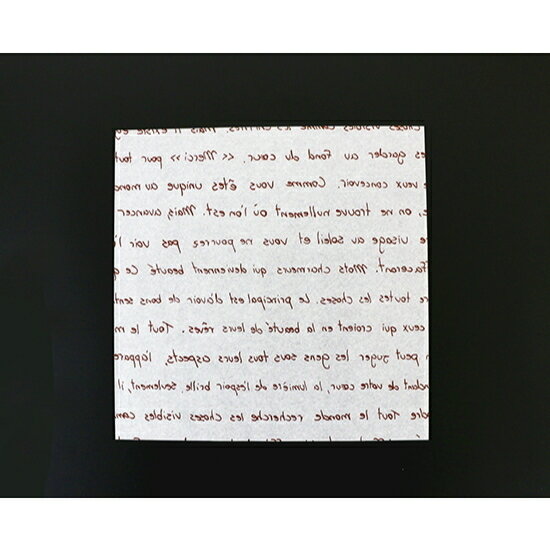 choses visibles comme les chimères. Mais il existe
es garder au fond du cœur. << Merci >> pour tout
e veux concevoir. Comme vous êtes unique au mon
e, on ne trouve nullement où l'on est. Mais, avancer
re visage au soleil et vous ne pourrez pas voir l'
ffaceront. Mots charmeurs qui deviennent beauté Ce q
re toutes les choses. Le principal est d'avoir de bons sent
ceux qui croient en la beauté de leurs rêves. Tout le m
n peut juger les gens sous tous leurs aspects, l'appare
ndant de votre cœur, la lumière de l'espoir brille. seulement, il
dre Tout le monde recherche les choses visibles com